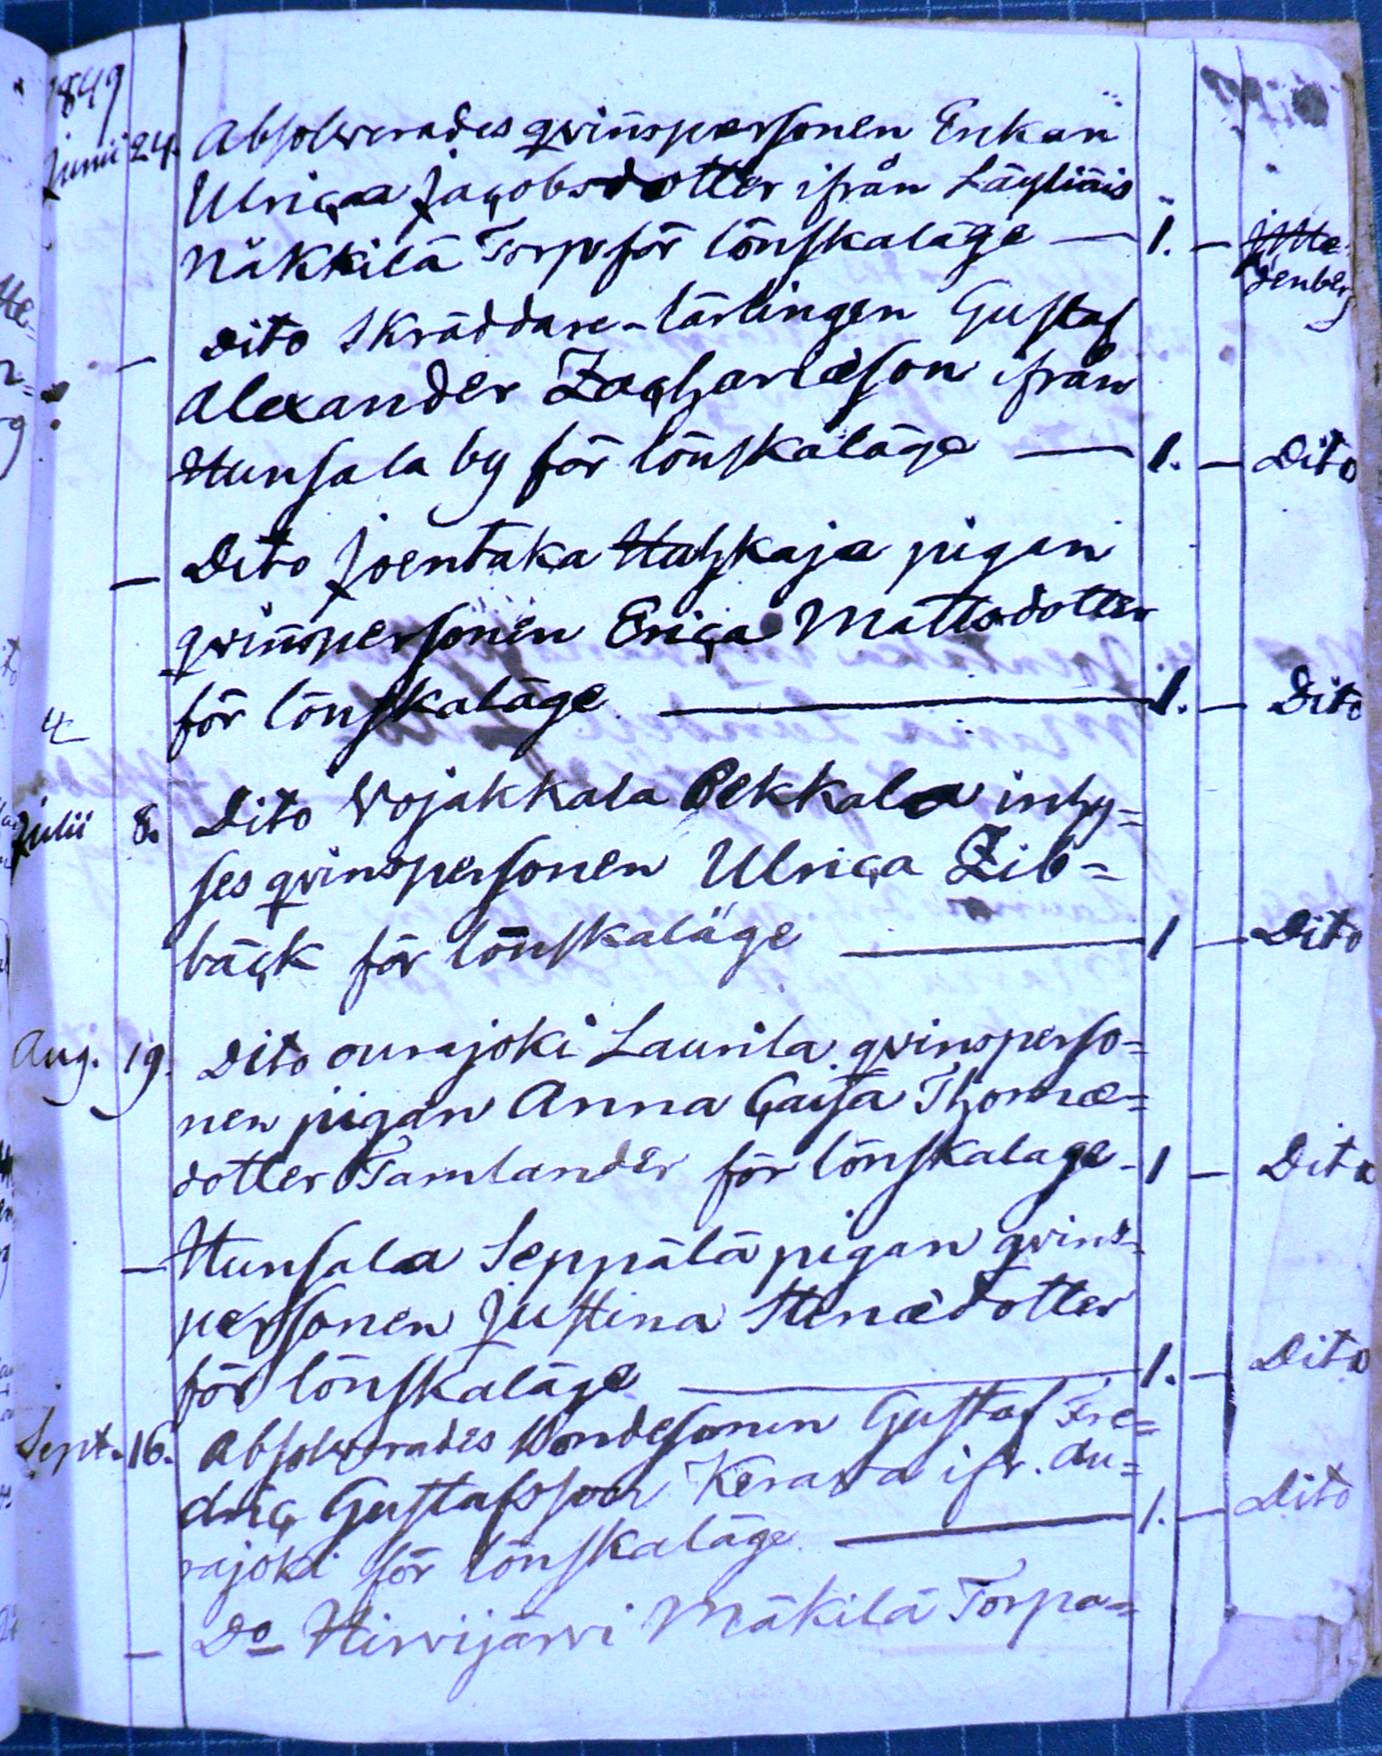 1849
Junii 24. Absolverades qvinspersonen Enkan
Ulrica Jacobsdotter ifrån Läyliäis
Näkkilä Torp för lönskaläge — 1. —
denberg
— Dito Skräddare-lärlingen Gustaf
Alexander Zachariæson ifrån
Hunsala by för lönskaläge — 1. — Dito
— Dito Joentaka Hahkaja pigan
qvinspersonen Erica Mattsdotter
för lönskaläge — 1. — Dito
Julii 8. Dito Wojakkala Pekkala inhy=
ses qvinspersonen Ulrica Zib=
bäck för lönskaläge — 1 — Dito
Aug. 19. Dito ourajoki Laurila qvinsperso=
nen pigan Anna Caisa Thomæ=
dotter Tamlander för lönskaläge - 1 — Dito
— Hunsala Seppälä pigan qvins=
personen Justina Stinædotter
för lönskaläge — 1. — Dito
Sept. 16. Absolverades Bondesonen Gustaf Fre=
dric Gustafsson Kerawa ifr. Au=
rajoki för lönskaläge — 1. — Dito
— Do Hirvijärvi Mäkilä Torpa=